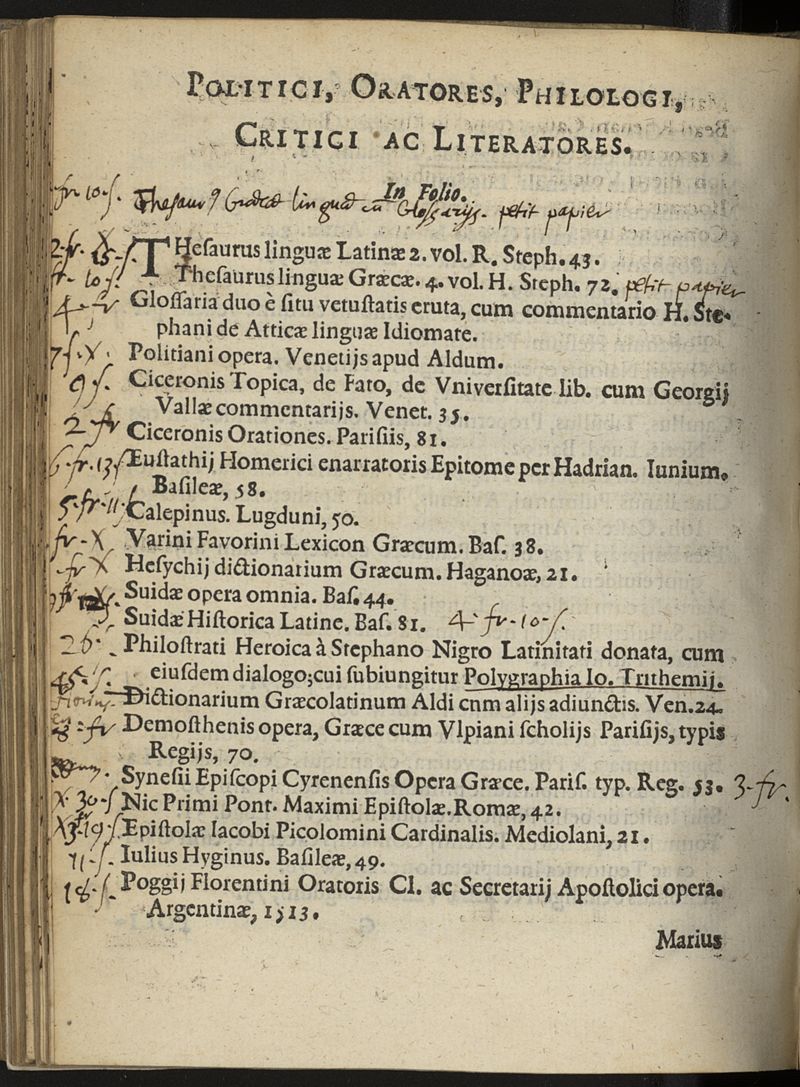 POLITICI, ORATORES, PHILOLOGI,
CRITICI AC LITERATORES.
In Folio.
fr 10 ſ. Theſaur9 Græcæ linguæ cū Gloſſarijs. petit papier
THeſaurus linguæ Latinæ 2. vol. R. Steph. 43.
Theſaurus linguæ Græcæ. 4. vol. H. Steph. 72. petit papier
Gloſſaria duo è ſitu vetuſtatis eruta, cum commentario H. Ste-
phani de Atticæ linguæ Idiomate.
Politiani opera. Venetijs apud Aldum.
9 ſ. Ciceronis Topica, de Fato, de Vniverſitate lib. cum Georgij
Vallæ commentarijs. Venet. 35.
2-fr Ciceronis Orationes. Pariſiis, 81.
6-fr.13ſ Euſtathij Homerici enarratoris Epitome per Hadrian. Iunium.
Baſileæ, 58.
5-fr-11ſ Calepinus. Lugduni, 50.
fr-X Varini Favorini Lexicon Græcum. Baſ. 38.
fr X Heſychij dictionarium Græcum. Haganoæ, 21.
Suidæ opera omnia. Baſ. 44.
Suidæ Hiſtorica Latine. Baſ. 81. 4-fr-10-ſ.
Philoſtrati Heroica à Stephano Nigro Latinitati donata, cum
eiuſdem dialogo; cui ſubiungitur Polygraphia Io. Trithemij.
Dictionarium Græcolatinum Aldi cnm alijs adiunctis. Ven. 24.
Demoſthenis opera, Græce cum Vlpiani ſcholijs Pariſijs, typis
Regijs, 70.
Syneſii Epiſcopi Cyrenenſis Opera Græce. Pariſ. typ. Reg. 53. 3-fr.
Nic Primi Pont. Maximi Epiſtolæ. Romæ, 42.
Epiſtolæ Iacobi Picolomini Cardinalis. Mediolani, 21.
11-ſ. Iulius Hyginus. Baſileæ, 49.
Poggij Florentini Oratoris Cl. ac Secretarij Apoſtolici opera.
Argentinæ, 1513.
Marius